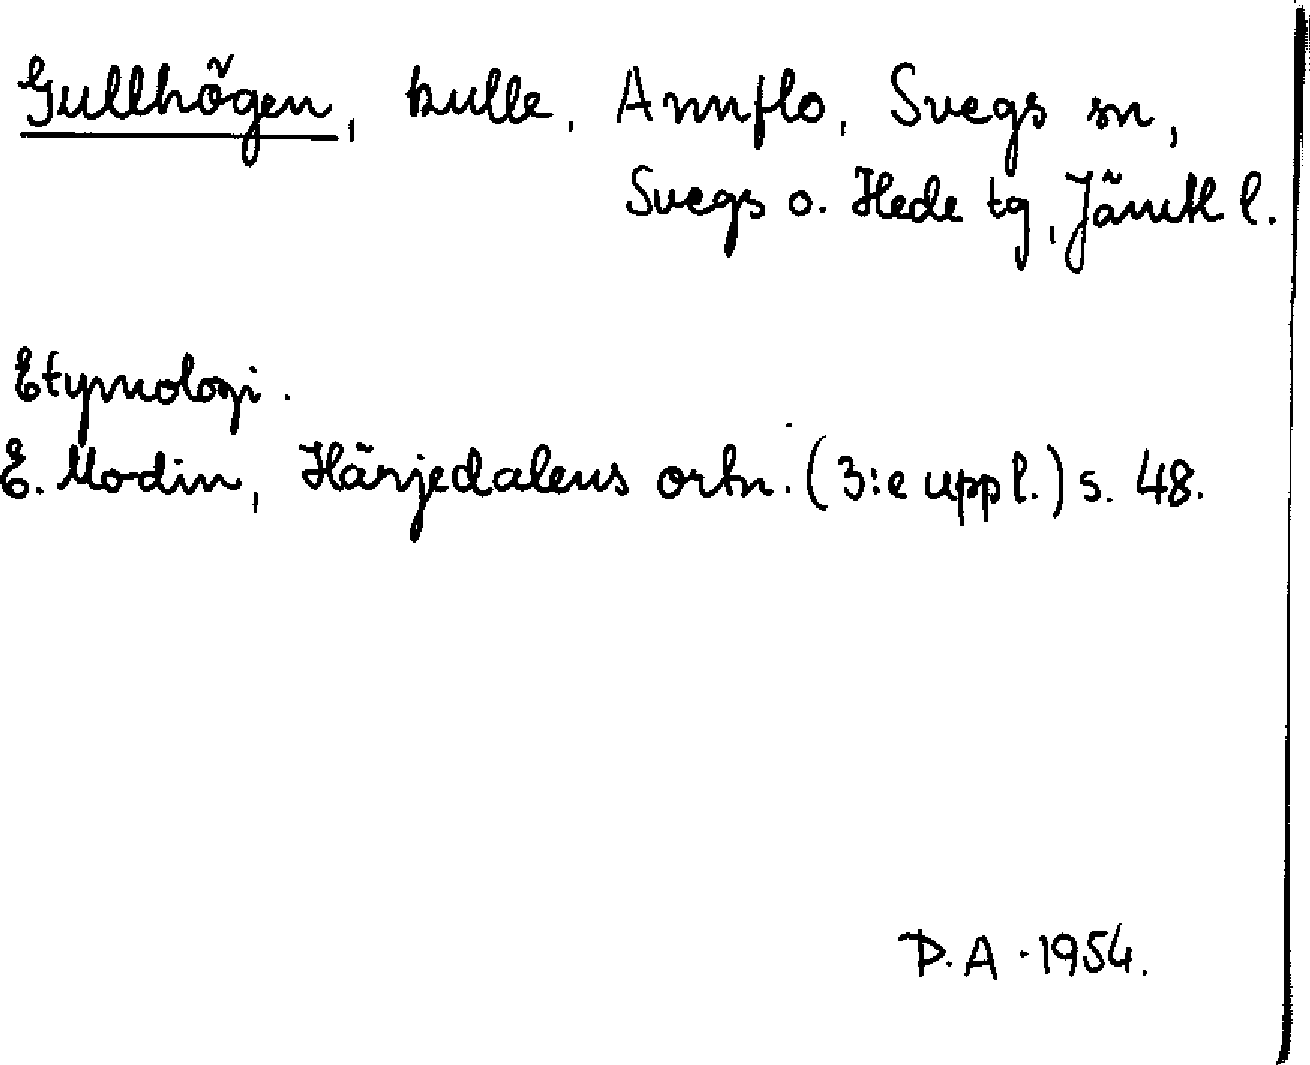 Gullhögen, kulle, Annflo, Svegs sn,
Svegs o. Hede tg, Jämtl l.
Etymologi.
E. Modin, Härjedalens ortn. (3:e uppl.) s. 48.
D. A. 1954.